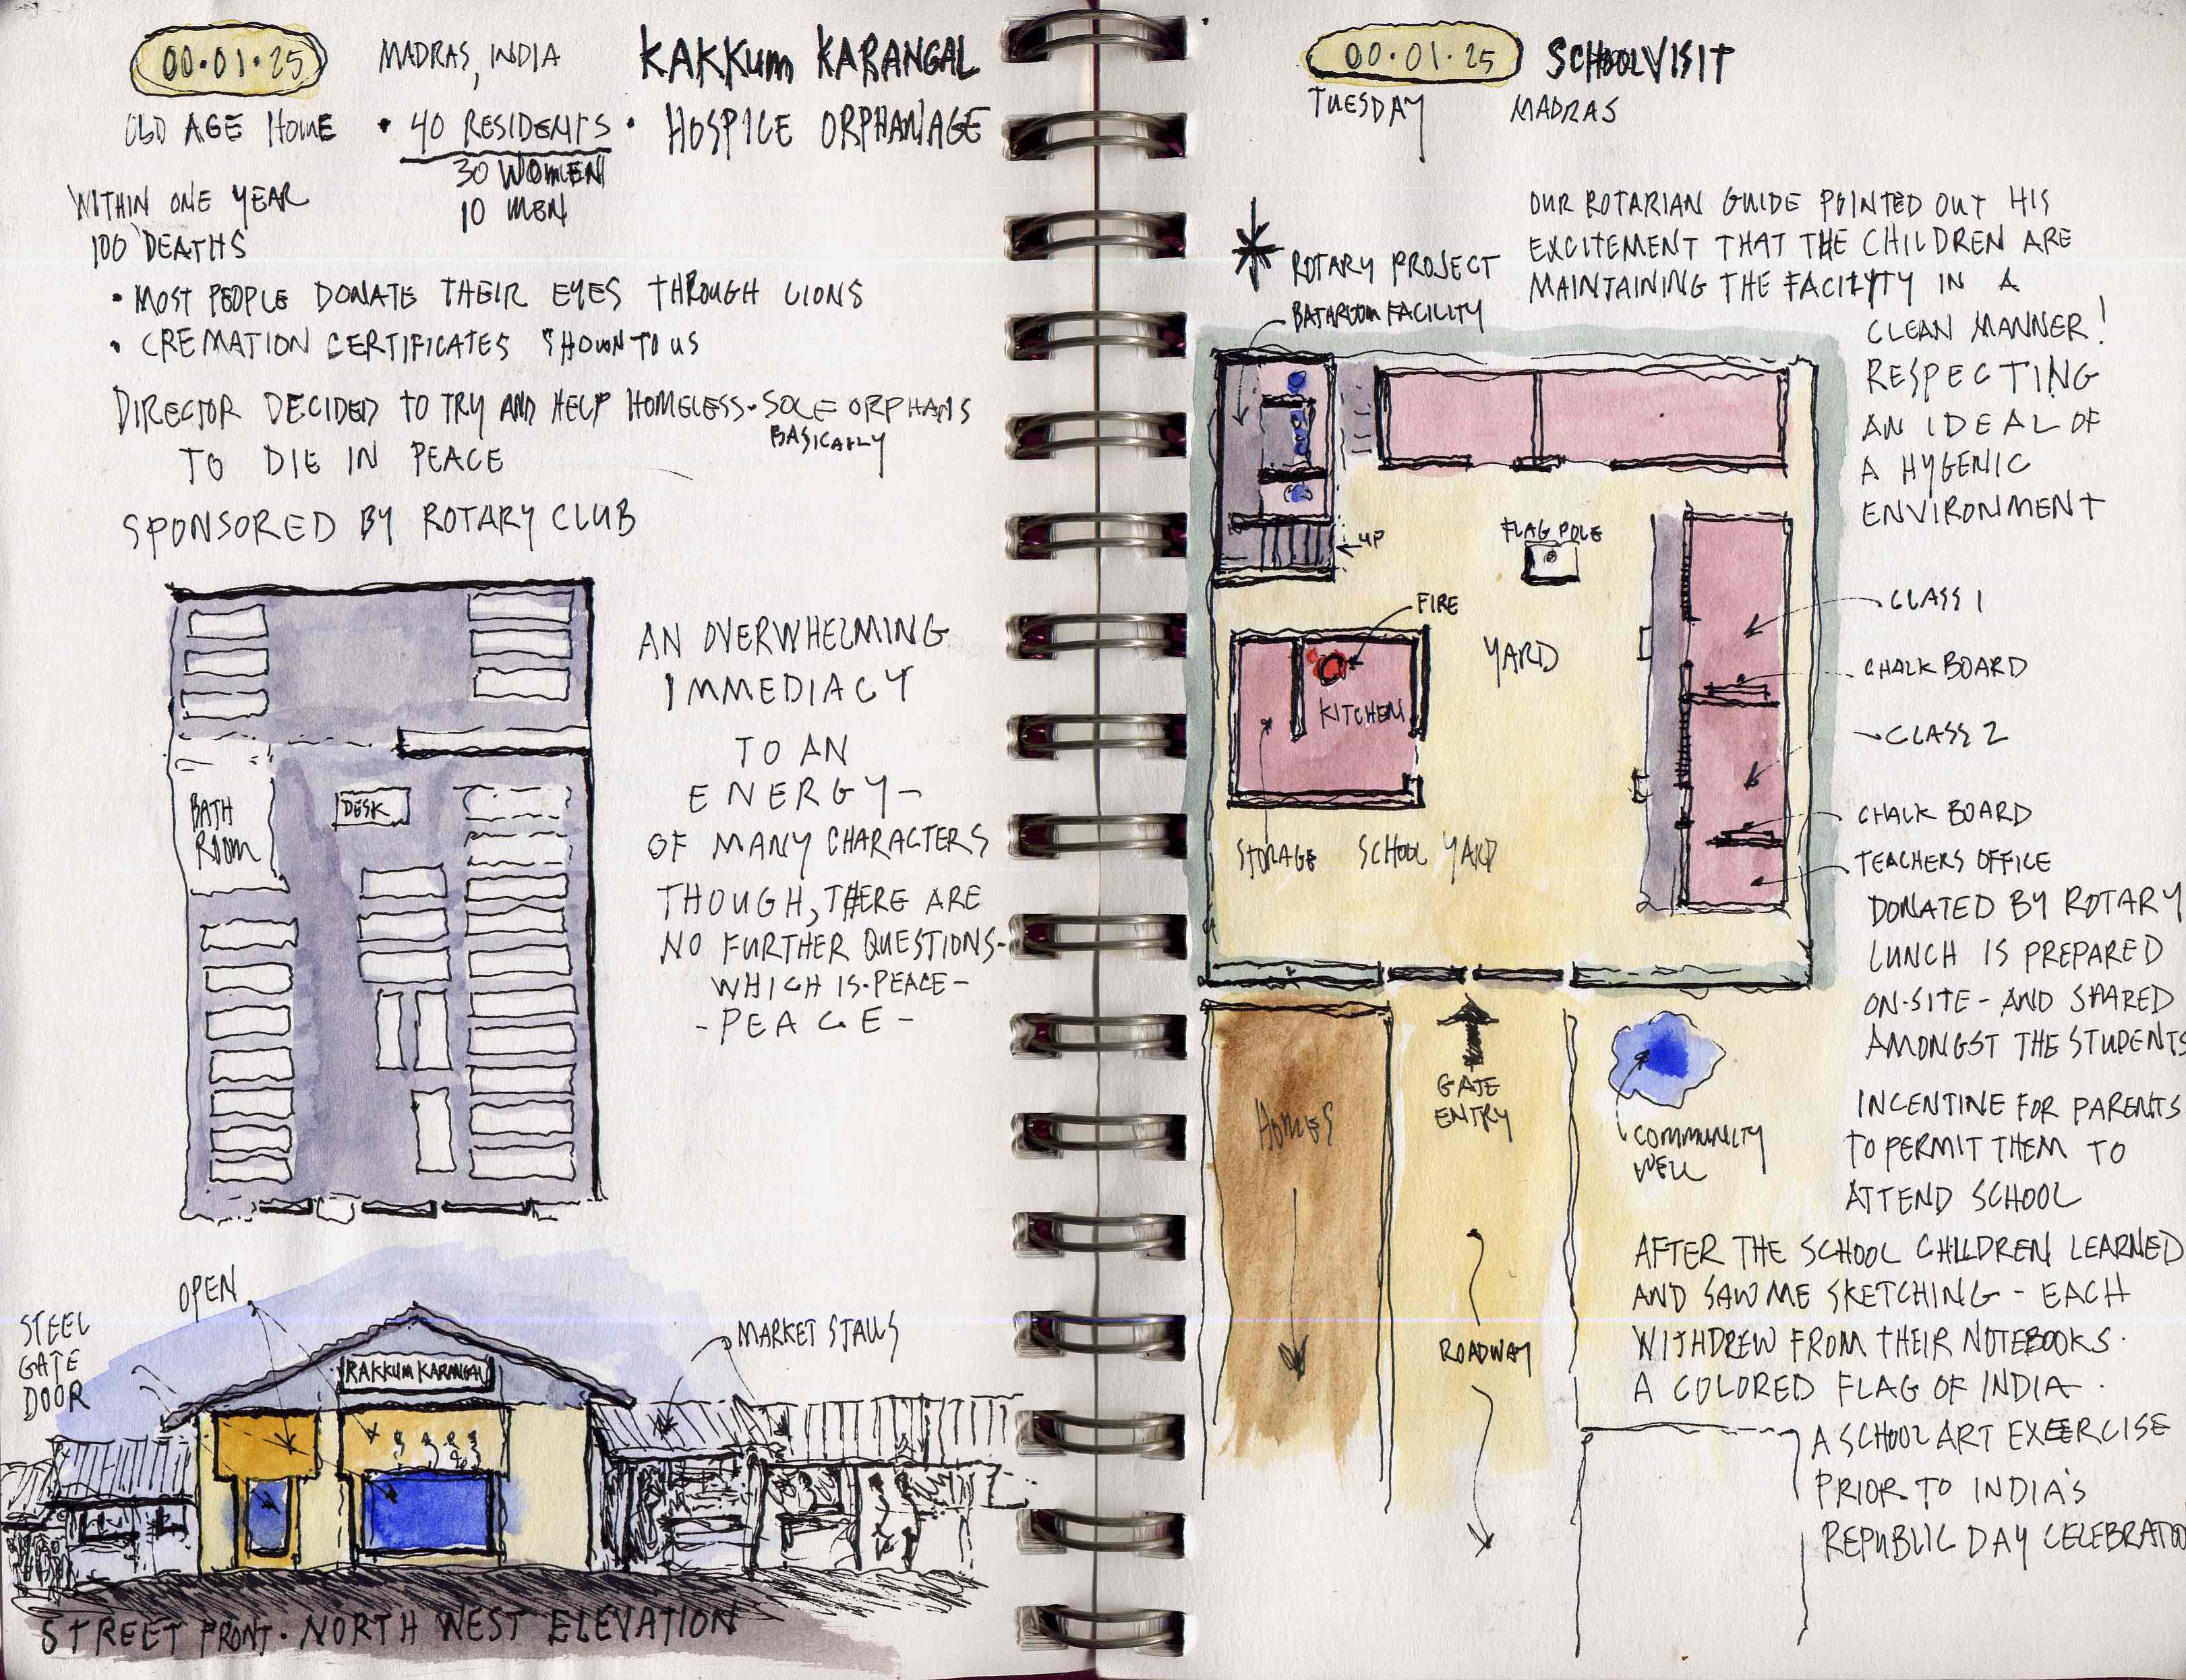 00·01·25
MADRAS, INDIA
KAKKUM KARANGAL
OLD AGE HOME • 40 RESIDENTS • HOSPICE ORPHANAGE
30 WOMEN
10 MEN
WITHIN ONE YEAR
100 DEATHS
• MOST PEOPLE DONATE THEIR EYES THROUGH LIONS
• CREMATION CERTIFICATES SHOWN TO US
DIRECTOR DECIDED TO TRY AND HELP HOMELESS - SOLE ORPHANS
BASICALLY
TO DIE IN PEACE
SPONSORED BY ROTARY CLUB
BATH
ROOM
DESK
AN OVERWHELMING
IMMEDIACY
TO AN
ENERGY -
OF MANY CHARACTERS
THOUGH, THERE ARE
NO FURTHER QUESTIONS -
WHICH IS - PEACE -
- PEACE -
OPEN
STEEL
GATE
DOOR
MARKET STALLS
KAKKUM KARANGAL
STREET FRONT · NORTH WEST ELEVATION
00·01·25
SCHOOL VISIT
TUESDAY
MADRAS
ROTARY PROJECT
BATHROOM FACILITY
OUR ROTARIAN GUIDE POINTED OUT HIS
EXCITEMENT THAT THE CHILDREN ARE
MAINTAINING THE FACILITY IN A
CLEAN MANNER!
RESPECTING
AN IDEAL OF
A HYGENIC
ENVIRONMENT
UP
FLAG POLE
FIRE
YARD
KITCHEN
STORAGE
SCHOOL YARD
CLASS 1
CHALK BOARD
CLASS 2
CHALK BOARD
TEACHERS OFFICE
DONATED BY ROTARY
LUNCH IS PREPARED
ON-SITE - AND SHARED
AMONGST THE STUDENTS
INCENTINE FOR PARENTS
TO PERMIT THEM TO
ATTEND SCHOOL
GATE
ENTRY
HOMES
COMMUNITY
WELL
ROADWAY
AFTER THE SCHOOL CHILDREN LEARNED
AND SAW ME SKETCHING - EACH
WITHDREW FROM THEIR NOTEBOOKS ·
A COLORED FLAG OF INDIA ·
A SCHOOL ART EXERCISE
PRIOR TO INDIA'S
REPUBLIC DAY CELEBRATIO